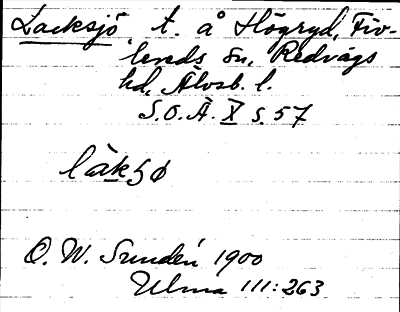 Lacksjö, t. å Högryd, Fiv-
lereds sn, Redvägs
hd, Älvsb. l.
S.O.Ä. X s. 57
làkʒø
O. W. Sundén 1900
Ulma 111:263